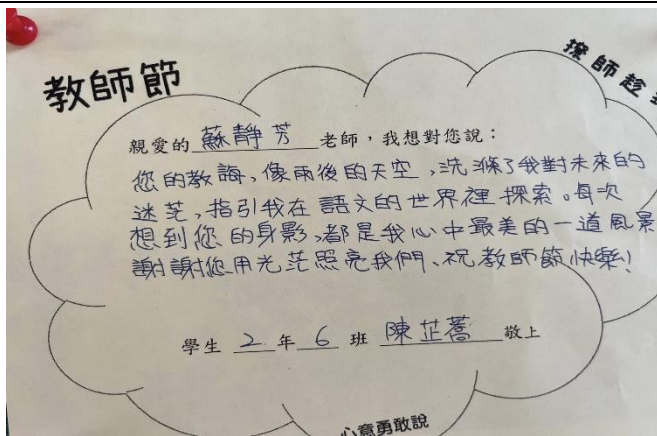 教師節
撩師趁
親愛的 蘇靜芳 老師，我想對您說：
您的教誨、像雨後的天空，洗滌了我對未來的
迷茫，指引我在語文的世界裡探索。每次
想到您的身影，都是我心中最美的一道風景
謝謝您用光茫照亮我們、祝教師節快樂！
學生 2 年 6 班 陳芷蕎 敬上
心意勇敢說